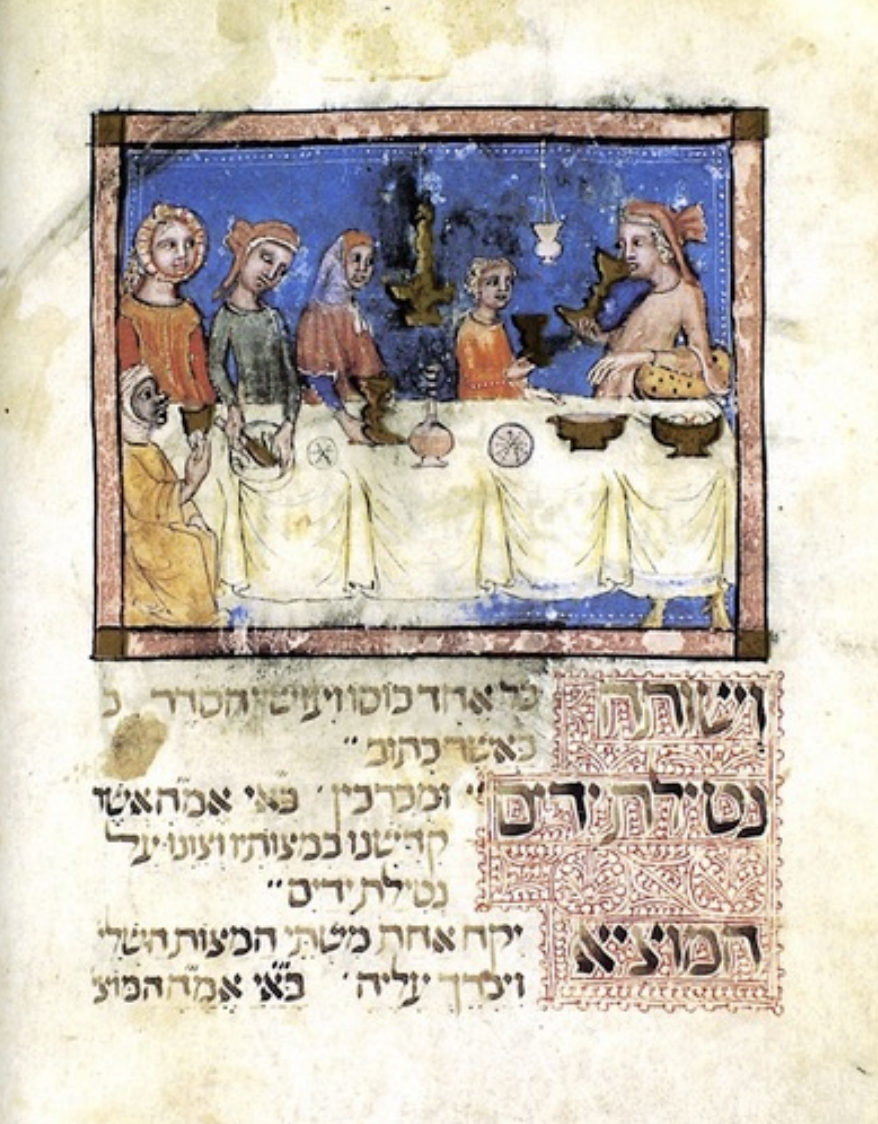 ושותה כל אחד כוסו ויעשו הסדר כ
כאשר כתוב״
נטילת ידים ״ ומברכין ׳ בא״י אמ״ה אשר
קדשנו במצותיו וצונו על
נטילת ידים״
המוציא יקח אחת משתי המצות השלי
ויברך עליה ׳ בא״י אמ״ה המוצי